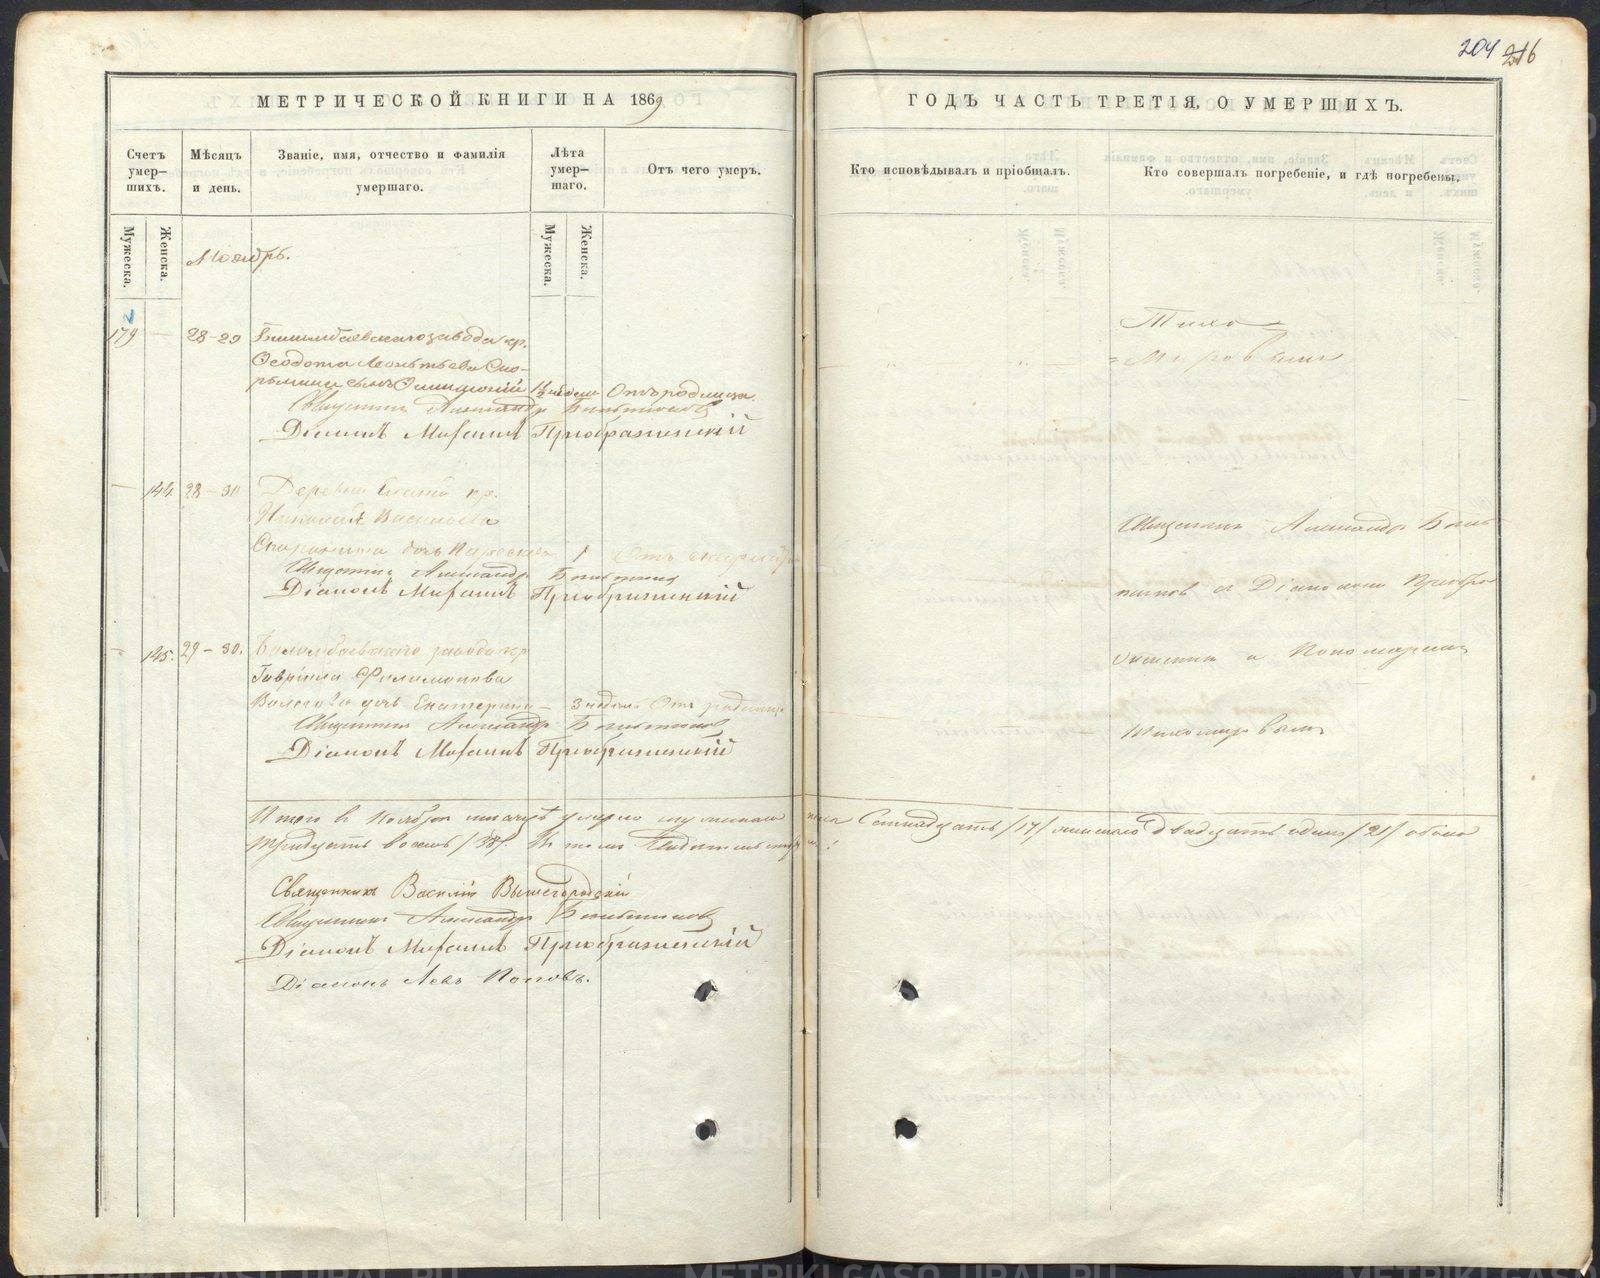 204 216
МЕТРИЧЕСКОЙ КНИГИ НА 1869
ГОДЪ ЧАСТЬ ТРЕТІЯ, О УМЕРШИХЪ.
Счетъ умер-
шихъ.
Мѣсяцъ
и день.
Званіе, имя, отчество и фамилія
умершаго.
Лѣта
умер-
шаго.
Отъ чего умеръ.
Кто исповѣдывалъ и пріобщалъ.
Кто совершалъ погребеніе, и гдѣ погребены.
Мужеска.
Женска.
Мужеска.
Женска.
Ноябрь.
179 — 28-29 Билимбаевскаго завода кр.
Ѳеодота Леонтьева
сынъ 1½ недели Отъ родимца.
Священникъ Александръ
Діаконъ Михаилъ Преображенскій
Тихо-
=мировымъ
— 144 28-30 Деревни кр.
Николая Васильева
дочь Параскева 1 Отъ
Священникъ Александръ
Діаконъ Михаилъ Преображенскій
Священникъ Александръ
съ Діакономъ Преобра-
женскимъ и Пономаремъ
Тихомировымъ
— 145. 29-30. Билимбаевскаго завода кр.
Гавріила Филимонова
дочь Екатерина — 3 недель Отъ родимца
Священникъ Александръ
Діаконъ Михаилъ Преображенскій
Итого въ Ноябрѣ месяцѣ умерло мужеска пола Семнадцать /17/ женскаго двадцать одинъ /21/ обоего
тридцать восемь /38/. Въ томъ свидетельствуемъ:
Священникъ Василій Вышегородскій
Священникъ Александръ
Діаконъ Михаилъ Преображенскій
Діаконъ Левъ Поповъ.
METRIKI.GASO-URAL.RU